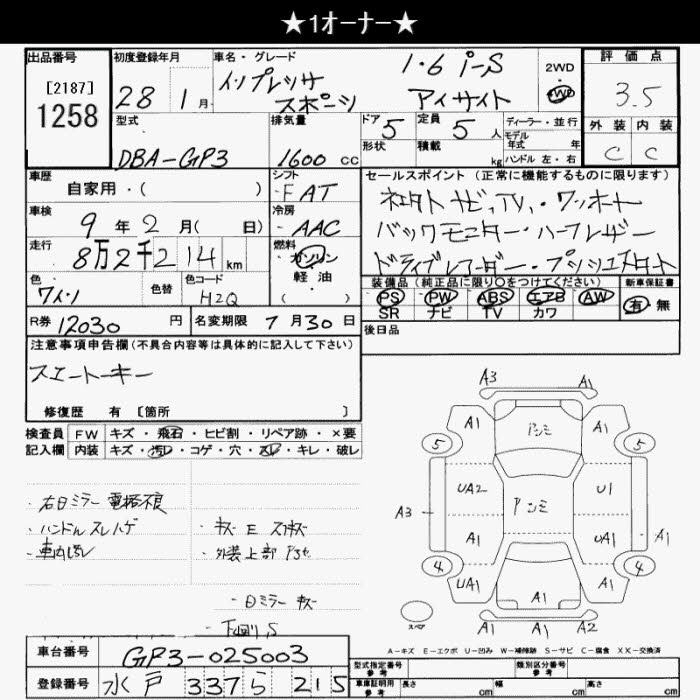 ★1ｵｰﾅｰ★
出品番号
[2187]
1258
初度登録年月
28 1月
車名・グレード
インプレッサ 1・6 i-S
スポーツ アイサイト
2WD
・
4WD
評価点
3.5
外装 内装
C C
型式
DBA-GP3
排気量
1600 CC
ドア 5
形状
定員 5 人
積載 kg
ディーラー・並行
モデル年式 年
ハンドル 左・右
車歴
自家用・( )
シフト
FAT
車検
9年2月( 日)
冷房
AAC
走行
8万2千214 km
燃料
ガソリン
軽油
( )
色
ワイン
色替
色コード
H2Q
R券 12030 円
名変期限 7月30日
セールスポイント (正常に機能するものに限ります)
ナビ,TV,・ワンオーナー
バックモニター・ハーフレザー
ドライブレコーダー・プッシュスタート
装備品(純正品に限り○をつけてください)
PS PW ABS エアB AW
SR ナビ TV カワ
新車保証書
有・無
後日品
注意事項申告欄(不具合内容等は具体的に記入して下さい)
スマートキー
修復歴 有 [箇所 ]
検査員
記入欄
FW キズ・飛石・ヒビ割・リペア跡・×要
内装 キズ・汚レ・コゲ・穴・スレ・キレ・破レ
・右ミラー 電格不良
・ハンドルスレハゲ
・車内汚レ
・キズ E スリキズ
・外装上部
・ミラー キズ
・下回りS
A3 A1
A1 アンミ A1
5 5
UA2 アンミ U1
A3 A1 UA1 A1
4 4
UA1 A1 UA1
A1 A1 A2
スペア
A-キズ E-エクボ U-凹み W-補修跡 S-サビ C-腐食 XX-交換済
車台番号 GP3-025003
登録番号 水戸 337 ら 215
型式指定番号
参考
類別区分番号
参考
車庫証明用
参考
長さ cm 幅 cm 高さ cm